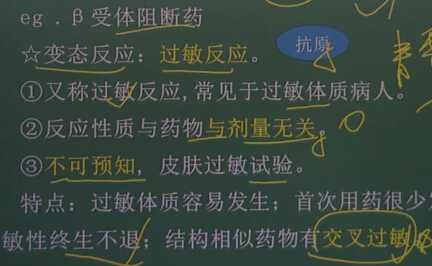 eg．β受体阻断药
☆变态反应：过敏反应。
抗原
①又称过敏反应,常见于过敏体质病人。
②反应性质与药物与剂量无关。
③不可预知，皮肤过敏试验。
特点：过敏体质容易发生；首次用药很少
敏性终生不退；结构相似药物有交叉过敏